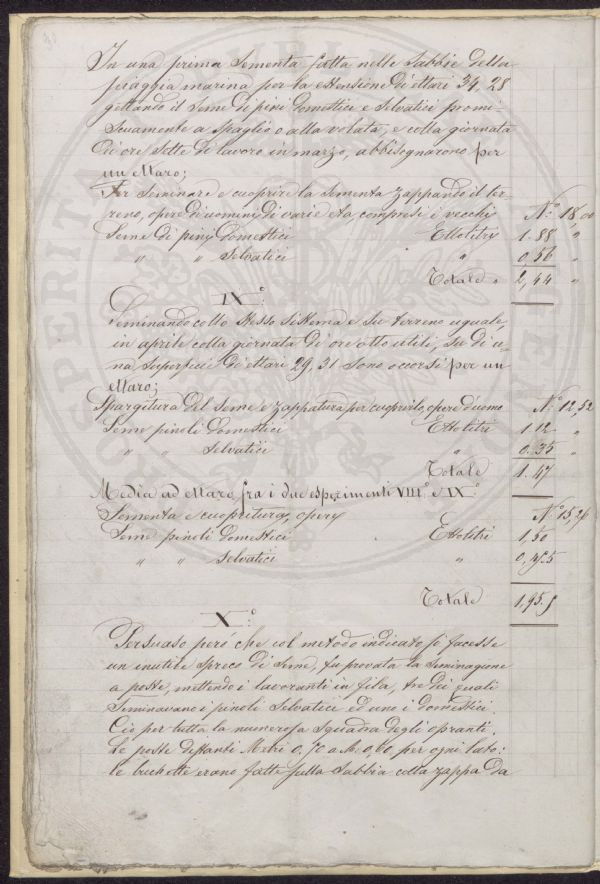 In una prima Sementa fatta nelle Sabbie della
piaggia marina per la estensione di ettari 34,28
gettando il seme di pini domestici e Selvatici promi=
scuamente a spaglio o alla volata, e colla giornata
di ore Sette di lavoro in marzo, abbisognarono per
un ettaro;
Per Seminare e cuoprire la Sementa zappando il ter=
reno, opere di uomini di varie età compresi i vecchi N.° 18,00
Seme di pini domestici Ettolitri 1.88 "
" " Selvatici " 0,56 "
Totale " 2,44 "
IX°
Seminando collo stesso sistema e su terreno uguale,
in aprile colla giornata di ore otto utili, su di u=
na superficie di ettari 29,31 sono occorsi per un
ettaro;
Spargitura del Seme e zappatura per cuoprirlo, opere d'uomo N.° 12,52
Seme pinoli domestici Ettolitri 1.12 "
" " Selvatici " 0.35 "
Totale 1.47
Media ad ettaro fra i due esperimenti VIII° e IX°
Sementa e cuopritura, opere N.° 15,26
Seme pinoli domestici Ettolitri 1,50
" " Selvatici " 0,45.5
Totale 1,95.5
X°
Persuaso però che col metodo indicato si facesse
un inutile spreco di Seme, fu provata la seminagione
a poste, mettendo i lavoranti in fila, tre dei quali
Seminavano i pinoli Selvatici ed uno i domestici.
Ciò per tutta la numerosa squadra degli opranti.
Le poste distanti Metri 0,70 a M. 0,60, per ogni lato:
le buchette erano fatte sulla Sabbia colla zappa da